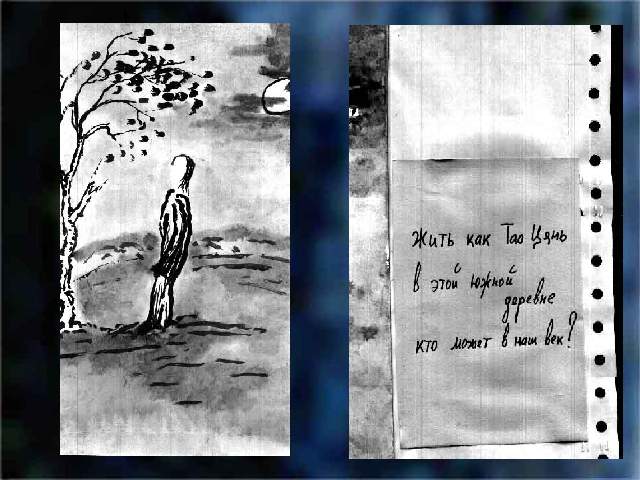 Жить как Тао Цянь
в этой южной
деревне
кто может в наш век?